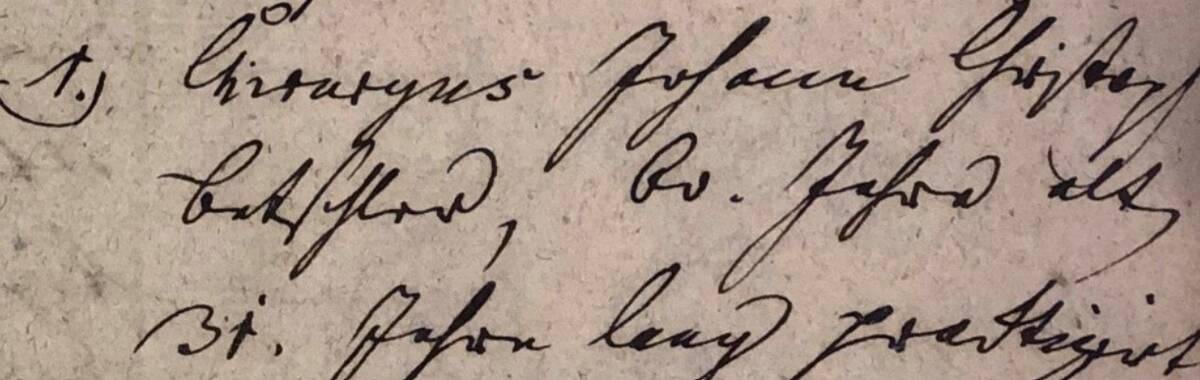 1.) Chirurgus Johann Christoph
Betschler, 60. Jahre alt,
31. Jahre lang practizirt